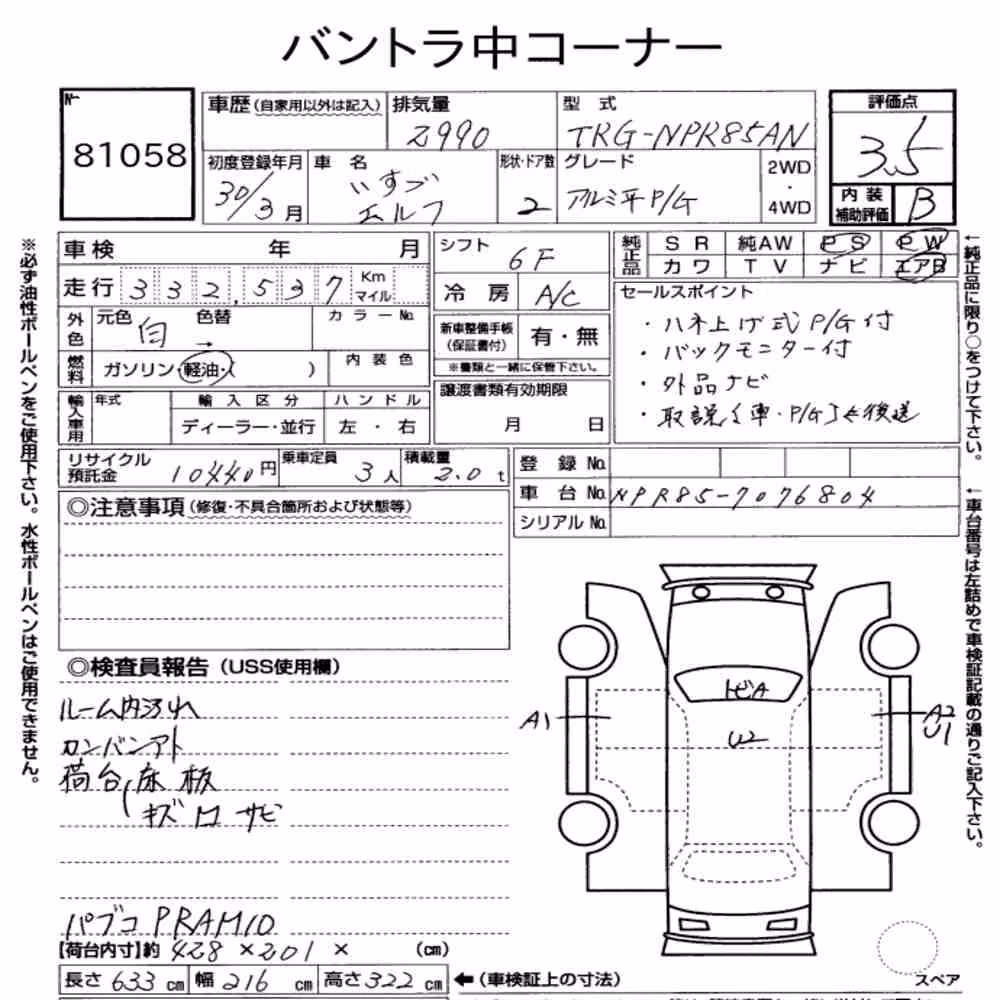 バントラ中コーナー
№ 81058
車歴 (自家用以外は記入) 排気量 2990
型式 TRG-NPR85AN
評価点 3.5
初度登録年月 30/3月
車名 いすゞ エルフ
形状・ドア数 2
グレード アルミ平P/G
2WD・4WD
内装補助評価 B
車検 年 月
シフト 6F
純正品 SR 純AW PS PW
カワ TV ナビ エアB
走行 332,537 Km マイル
冷房 A/C
セールスポイント
・ハネ上げ式P/G付
・バックモニター付
・外品ナビ
・取説(車・P/G)は後送
外色 元色 白 → 色替 カラーNo.
新車整備手帳(保証書付) 有・無
※書類と一緒に保管下さい。
燃料 ガソリン・軽油・( ) 内装色
譲渡書類有効期限 月 日
輸入車用 年式 輸入区分 ハンドル
ディーラー・並行 左・右
リサイクル預託金 10440円 乗車定員 3人 積載量 2.0t
登録No.
車台No. NPR85-7076804
シリアルNo.
◎注意事項(修復・不具合箇所および状態等)
◎検査員報告(USS使用欄)
ルーム内汚れ
カンバンアト
荷台(床板
キズ ロ サビ
トビA
A1
A2
U1
U2
パブコ PRAM10
【荷台内寸】約 428 × 201 × (cm)
長さ 633 cm 幅 216 cm 高さ 322 cm ←(車検証上の寸法)
スペア
※必ず油性ボールペンをご使用下さい。水性ボールペンはご使用できません。
←純正品に限り○をつけて下さい。
←車台番号は左詰めで車検証記載の通りご記入下さい。